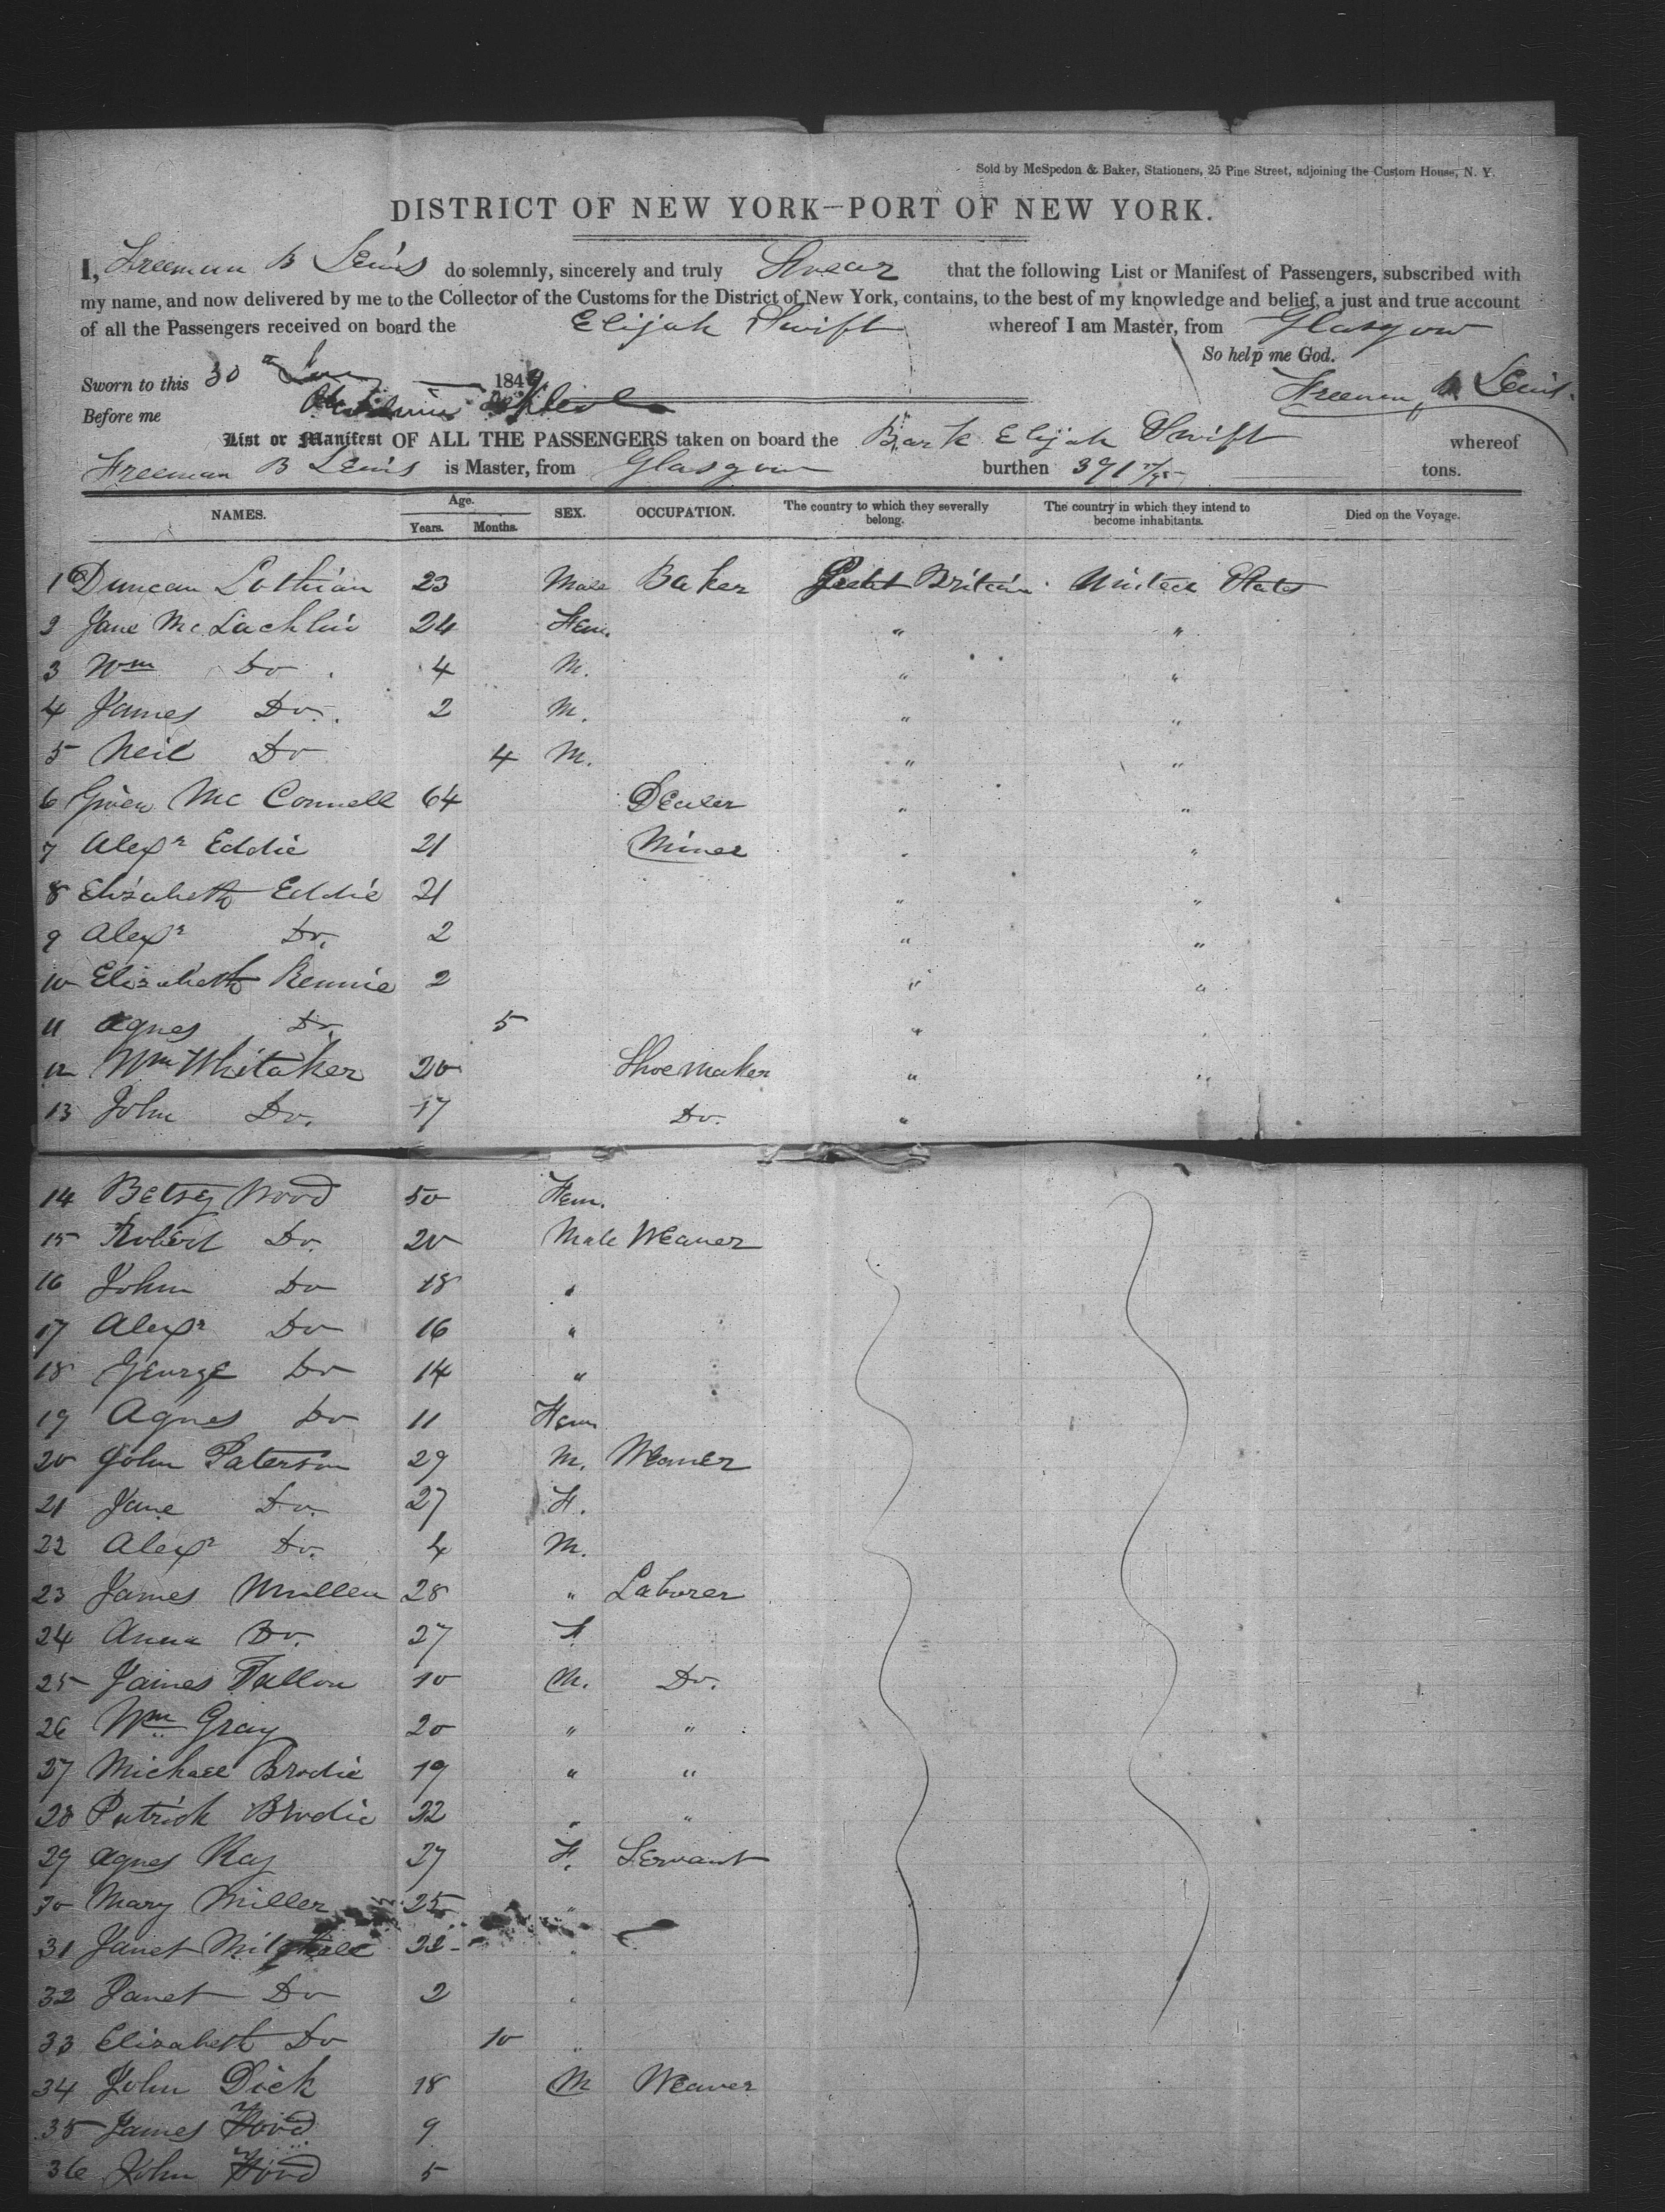 Sold by McSpedon & Baker, Stationers, 25 Pine Street, adjoining the Custom House, N. Y.
DISTRICT OF NEW YORK—PORT OF NEW YORK.
I, Freeman B Lewis do solemnly, sincerely and truly Swear that the following List or Manifest of Passengers, subscribed with
my name, and now delivered by me to the Collector of the Customs for the District of New York, contains, to the best of my knowledge and belief, a just and true account
of all the Passengers received on board the Elijah Swift whereof I am Master, from Glasgow
So help me God.
Sworn to this 30 1849 Freeman B Lewis.
Before me
List or Manifest OF ALL THE PASSENGERS taken on board the Bark Elijah Swift whereof
Freeman B Lewis is Master, from Glasgow burthen 391 tons.
NAMES. Age. Years. Months. SEX. OCCUPATION. The country to which they severally belong. The country in which they intend to become inhabitants. Died on the Voyage.
1 Duncan Lothian 23 Male Baker Great Britain United States
2 Jane McLachlin 24 Fem. " "
3 Wm Do 4 M. " "
4 James Do. 2 M. " "
5 Neil Do 4 M. " "
6 McConnell 64 Dealer " "
7 Alexr Eddie 21 Miner " "
8 Elizabeth Eddie 21 " "
9 Alexr Do. 2 " "
10 Elizabeth Rennie 2 " "
11 Agnes Do. 5 " "
12 Wm Whitaker 20 Shoemaker " "
13 John Do. 17 Do. "
14 Betsey Wood 50 Fem.
15 Robert Do. 20 Male Weaver
16 John Do 18 "
17 Alexr Do 16 "
18 George Do 14 "
19 Agnes Do 11 Fem
20 John Paterson 29 M. Weaver
21 Jane Do. 27 F.
22 Alexr Do. 4 M.
23 James Mullen 28 " Laborer
24 Anna Do. 27 F
25 James Fallon 10 M. Do.
26 Wm Gray 20 " "
27 Michael Brodie 19 " "
28 Patrick Brodie 22 " "
29 Agnes Kay 27 F. Servant
30 Mary Miller 25 "
31 Janet 22 "
32 Janet Do 2 "
33 Elizabeth Do 10 "
34 John Dick 18 M Weaver
35 James 9
36 John 5